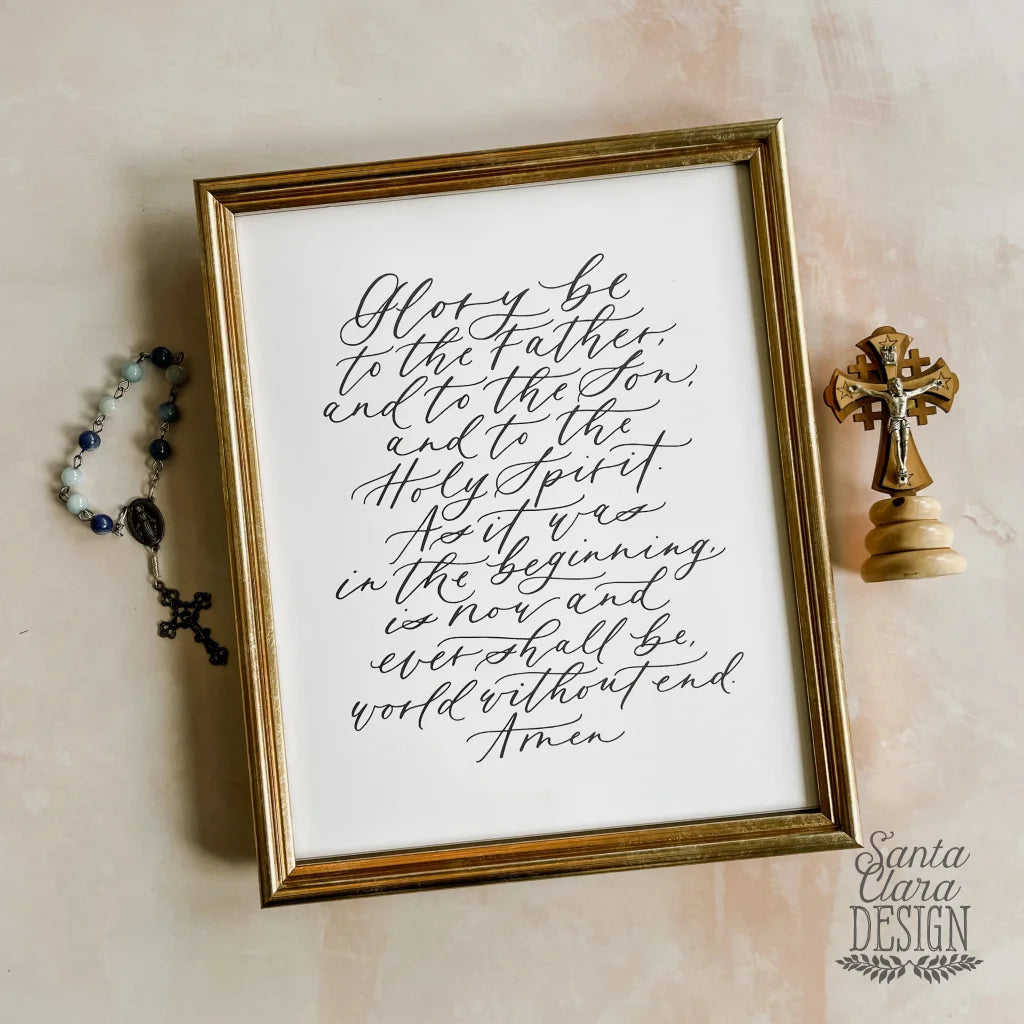 Glory be
to the Father,
and to the Son,
and to the
Holy Spirit.
As it was
in the beginning,
is now and
ever shall be,
world without end.
Amen
Santa
Clara
DESIGN